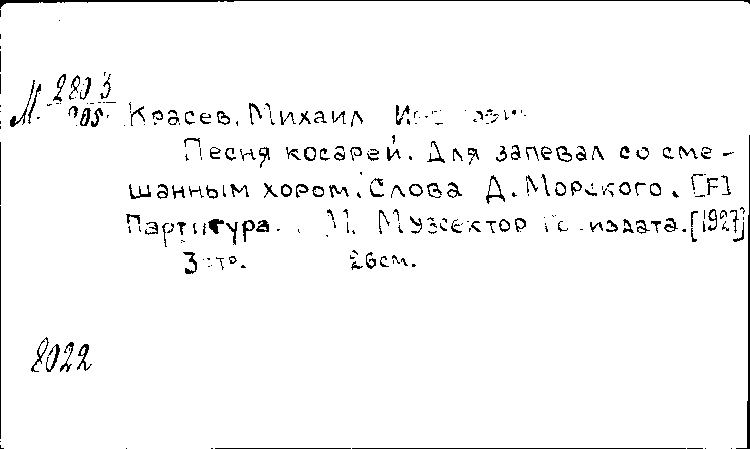 М. 2803
Красев, Михаил
Песня косарей. Для запевал со сме-
шанным хором. Слова Д. Морского. [F]
Партитура. М. Музсектор Госиздата. [1927]
3 стр. 26см.
8022